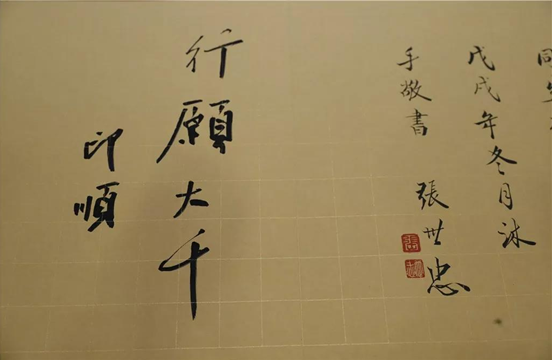 戊戌年冬月沐
手敬書 張世忠
行願大千
印順